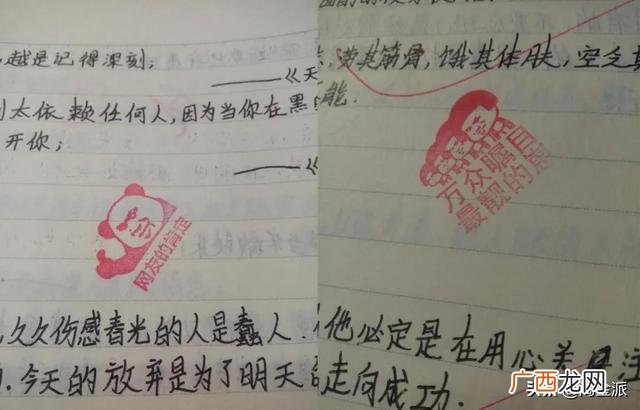 越是记得深刻;
——《天
太依赖任何人,因为当你在黑
开你;
——《
网友的肯定
久久伤感春光的人是蠢人.
.今天的放弃是为了明天
劳其筋骨,饿其体肤,空乏其
能.
万众瞩目
最靓的崽
他必定是在用心关注
走向成功.
广西龙网